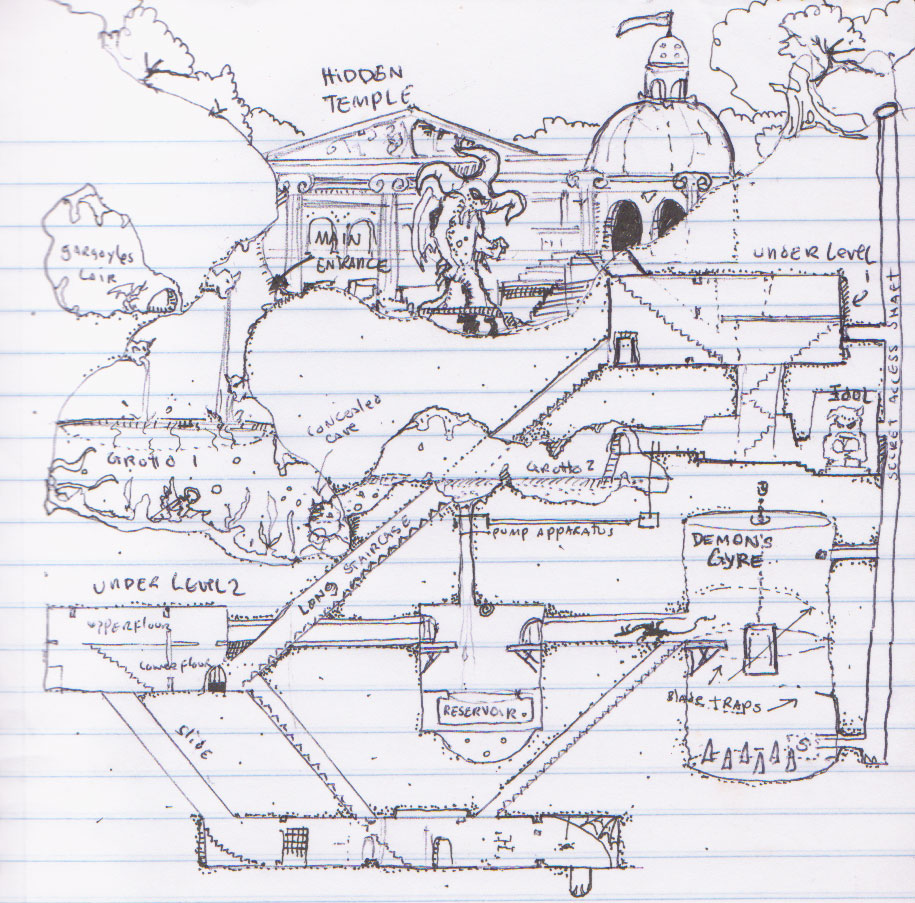 HIDDEN
TEMPLE
MAIN
ENTRANCE
gargoyles
Lair
UNDER LEVEL
1
SECRET ACCESS SHAFT
IDOL
CONCEALED
CAVE
GROTTO 1
GROTTO 2
PUMP APPARATUS
DEMON'S
GYRE
LONG STAIRCASE
UNDER LEVEL 2
UPPER FLOOR
LOWER FLOOR
RESERVOIR
BLADE TRAPS
S
SLIDE